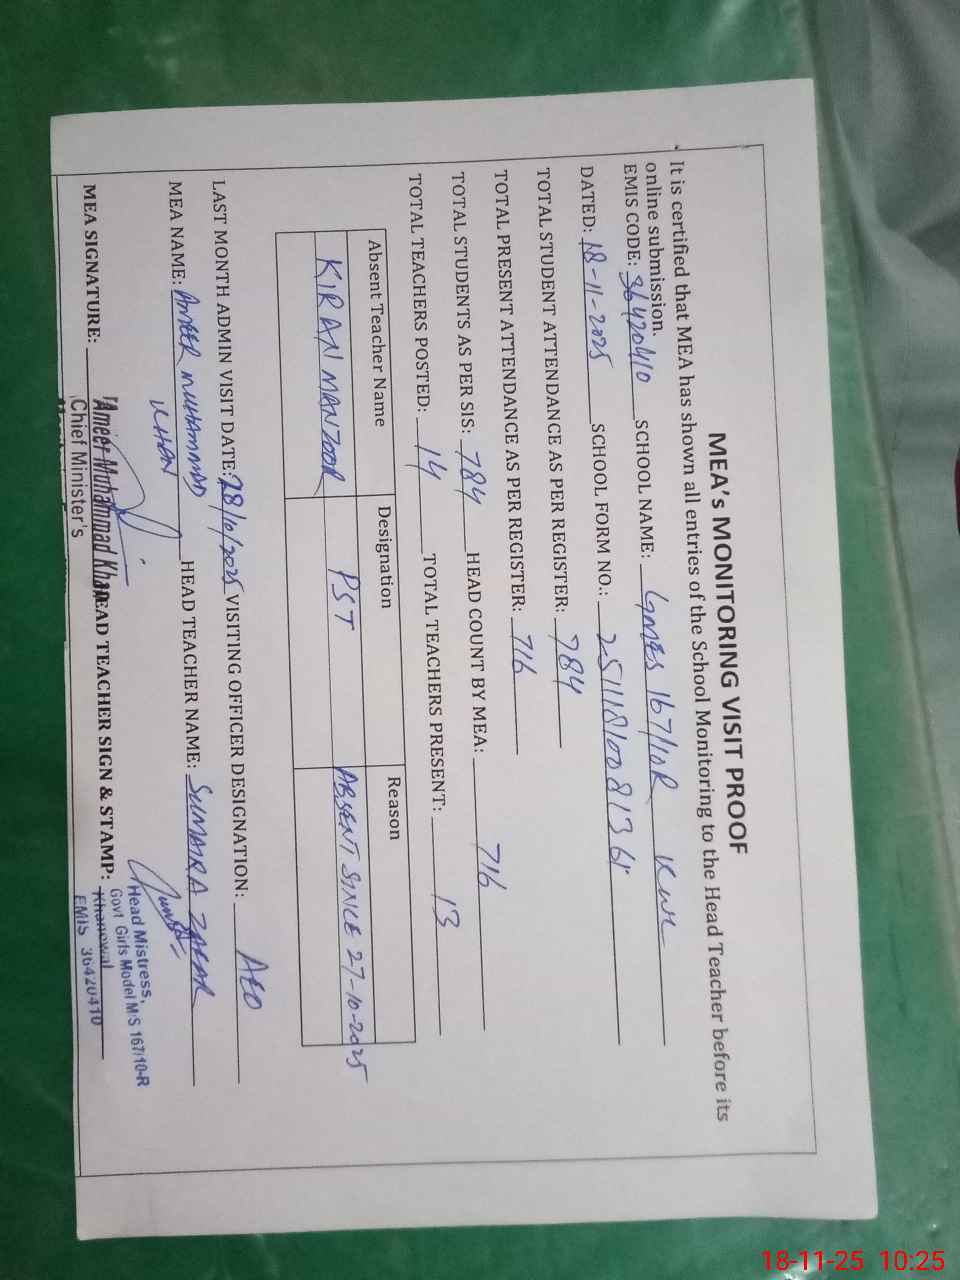 MEA's MONITORING VISIT PROOF
It is certified that MEA has shown all entries of the School Monitoring to the Head Teacher before its
online submission.
EMIS CODE: 36420410 SCHOOL NAME: GMES 167/10R KWL
DATED: 18-11-2025 SCHOOL FORM NO.: 
TOTAL STUDENT ATTENDANCE AS PER REGISTER: 784
TOTAL PRESENT ATTENDANCE AS PER REGISTER: 716
TOTAL STUDENTS AS PER SIS: 784 HEAD COUNT BY MEA: 716
TOTAL TEACHERS POSTED: 14 TOTAL TEACHERS PRESENT: 13
Absent Teacher Name Designation Reason
KIRAN MANZOOR PST ABSENT SINCE 27-10-2025
LAST MONTH ADMIN VISIT DATE: 28/10/2025 VISITING OFFICER DESIGNATION: AEO
MEA NAME: AMEER MUHAMMAD HEAD TEACHER NAME: SUMAIRA ZAFAR
KHAN
MEA SIGNATURE: HEAD TEACHER SIGN & STAMP:
Ameer Muhammad Khan
Chief Minister's
Head Mistress,
Govt Girls Model M/S 167/10-R
Khanewal
EMIS 36420410
18-11-25 10:25